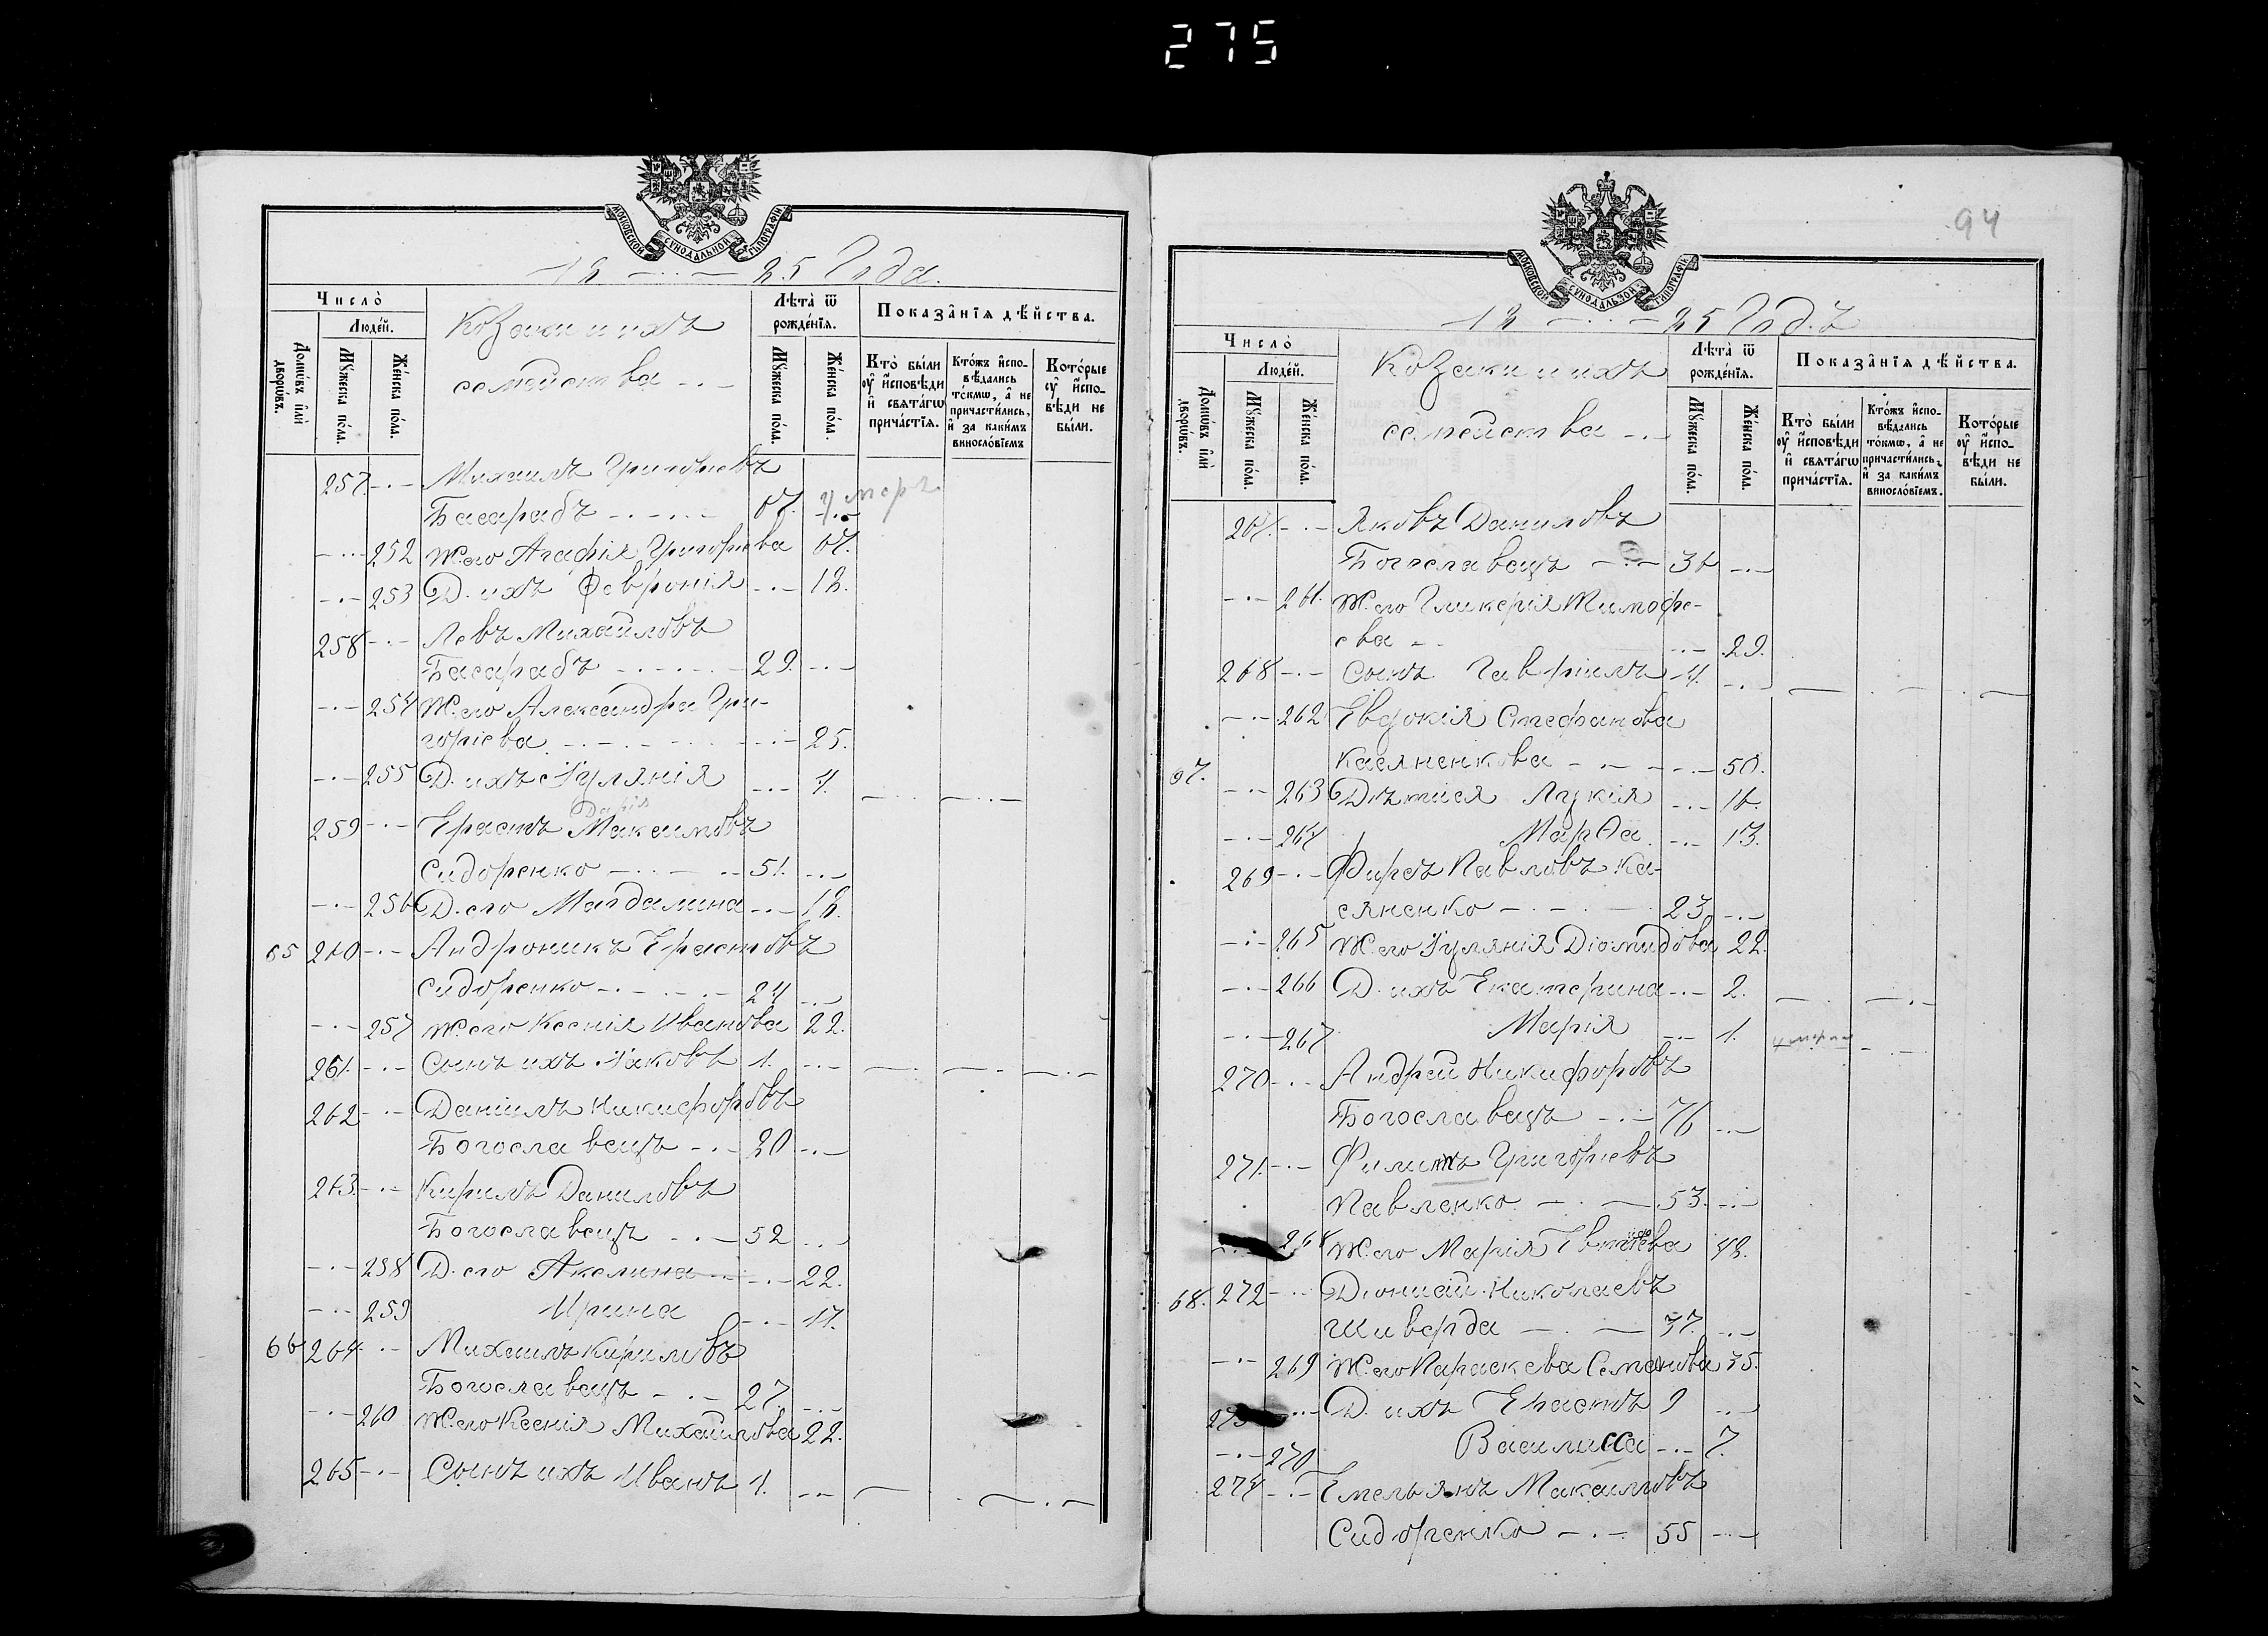 275
МОСКОВСКОЙ СѴНОДАЛЬНОЙ ТѴПОГРАФІИ
18 — · — 85 Года.
Число̀
Людéй.
Домѡ́въ и҆лѝ дворѡ́въ.
Мꙋ́жеска по́ла.
Же́нска по́ла.
Козаки и ихъ
семейства
Лѣ́та ѿ рожде́нїѧ.
Мꙋ́жеска по́ла.
Же́нска по́ла.
Показа̂нїѧ дѣ́йства.
Кто̀ бы́ли оу҆ и҆́сповѣди и҆ свѧта́гѡ прича́стїѧ.
Кто́жъ и҆спо-вѣ́дались то́кмѡ, а҆ не причасти́лись, и҆ за каки́мъ винословїемъ
Кото́рые оу҆ и҆́спо-вѣди не бы́ли.
257 Михаилъ Григорьевъ
Басарабъ 67.
252 Ж. его Агафія Григорьева 67.
253 Д. ихъ Февронія 18.
258 Левъ Михайловъ
Басарабъ 29.
254 Ж. его Александра Гри-
горіева 25.
255 Д. ихъ Іулянія 4.
Дарія
259 Ерастъ Максимовъ
Сидоренко 51.
256 Д. его Магдалина 18.
65 260 Андроникъ Ерастовъ
Сидоренко 24
257 Ж. его Ксенія Иванова 22.
261. Сынъ ихъ Іаковъ 1.
262 Даніилъ Никифоровъ
Богославецъ 20
263. Кирилъ Даниловъ
Богославецъ 52
258 Д. его Акелина 22.
259 Ирина 17.
66 264 Михаилъ Кириловъ
Богославецъ 27.
260 Ж. его Ксенія Михайлова 22.
265 Сынъ ихъ Иванъ 1.
94
МОСКОВСКОЙ СѴНОДАЛЬНОЙ ТѴПОГРАФІИ
18 — · — 85 Год.ъ
Число̀
Людéй.
Домѡ́въ и҆лѝ дворѡ́въ.
Мꙋ́жеска по́ла.
Же́нска по́ла.
Козаки и ихъ
семейства
Лѣ́та ѿ рожде́нїѧ.
Мꙋ́жеска по́ла.
Же́нска по́ла.
Показа̂нїѧ дѣ́йства.
Кто̀ бы́ли оу҆ и҆́сповѣди и҆ свѧта́гѡ прича́стїѧ.
Кто́жъ и҆спо-вѣ́дались то́кмѡ, а҆ не причасти́лись, и҆ за каки́мъ винословїемъ.
Кото́рые оу҆ и҆́спо-вѣди не бы́ли.
267. Яковъ Даниловъ
Богославецъ 36
261. Ж. его Гликерія Тимофе-
ева 29.
268 Сынъ Гавріилъ 4.
262 Евдокія Стефанова
67. Касяненкова 50.
263 Дѣти ея Лукія 16.
264 Марѳа 13.
269 Фирсъ Павловъ Ка-
сяненко 23
265 Ж. его Іулянія Діомидова 22.
266 Д. ихъ Екатерина 2.
267 Марія 1.
270 Андрей Никифоровъ
Богославецъ 76
271. Филипъ Григорьевъ
Павленко 53.
268 Ж. его Марія 48.
68. 272 Діонисій Николаевъ
Шиверда 37.
269 Ж. его Параскева Семенова 35.
273 Д. ихъ Ерастъ 9
270 Василисса 7.
274 Емельянъ Максимовъ
Сидоренко 55